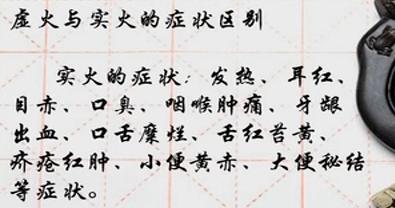 虚火与实火的症状区别
实火的症状:发热、耳红、
目赤、口臭、咽喉肿痛、牙龈
出血、口舌糜烂、舌红苔黄、
疥疮红肿、小便黄赤、大便秘结
等症状。